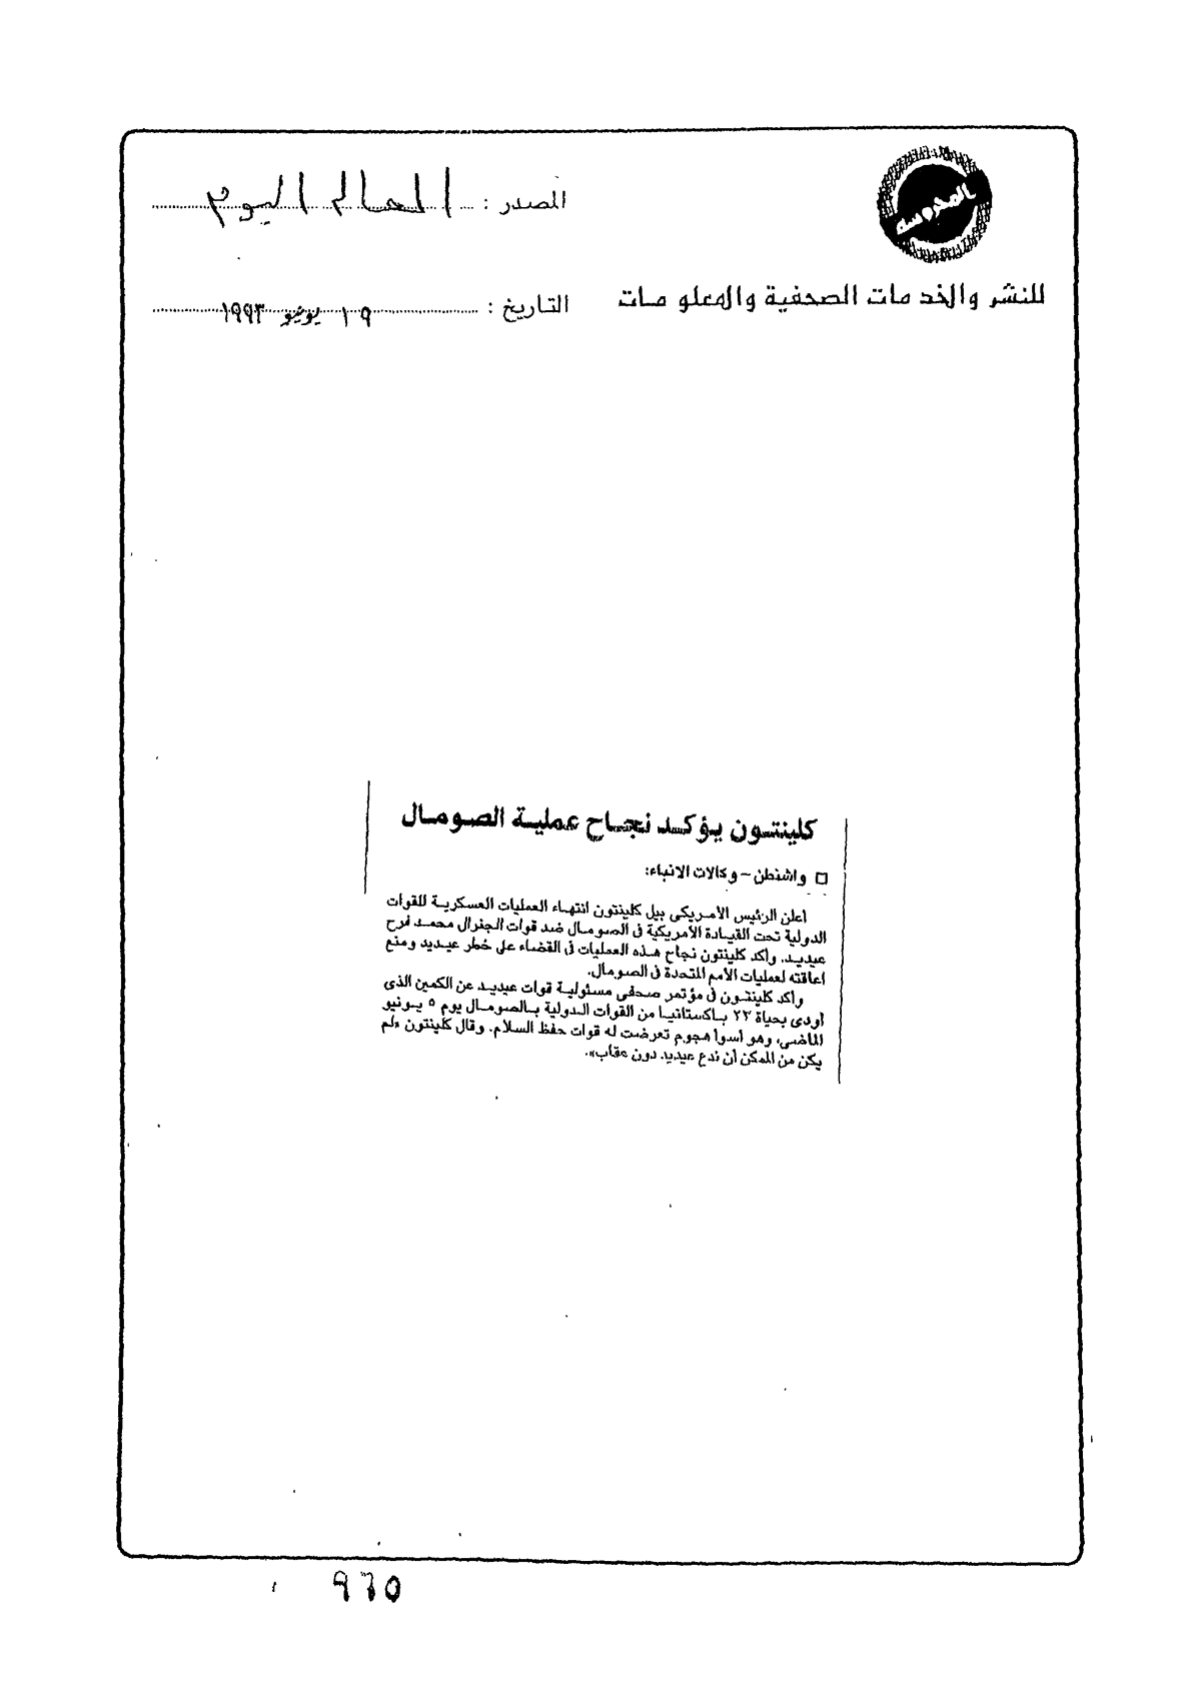 المحروسة
المصدر : العالم اليوم
للنشر والخدمات الصحفية والمعلومات
التاريخ : ١٩ يونيو ١٩٩٣
كلينتون يؤكد نجاح عملية الصومال
□ واشنطن - وكالات الانباء:
أعلن الرئيس الأمريكى بيل كلينتون انتهاء العمليات العسكرية للقوات
الدولية تحت القيادة الأمريكية فى الصومال ضد قوات الجنرال محمد فرح
عيديد. وأكد كلينتون نجاح هذه العمليات فى القضاء على خطر عيديد ومنع
اعاقته لعمليات الأمم المتحدة فى الصومال.
وأكد كلينتون فى مؤتمر صحفى مسئولية قوات عيديد عن الكمين الذى
أودى بحياة ٢٢ باكستانيا من القوات الدولية بالصومال يوم ٥ يونيو
الماضى، وهو أسوأ هجوم تعرضت له قوات حفظ السلام. وقال كلينتون «لم
يكن من الممكن أن ندع عيديد دون عقاب».